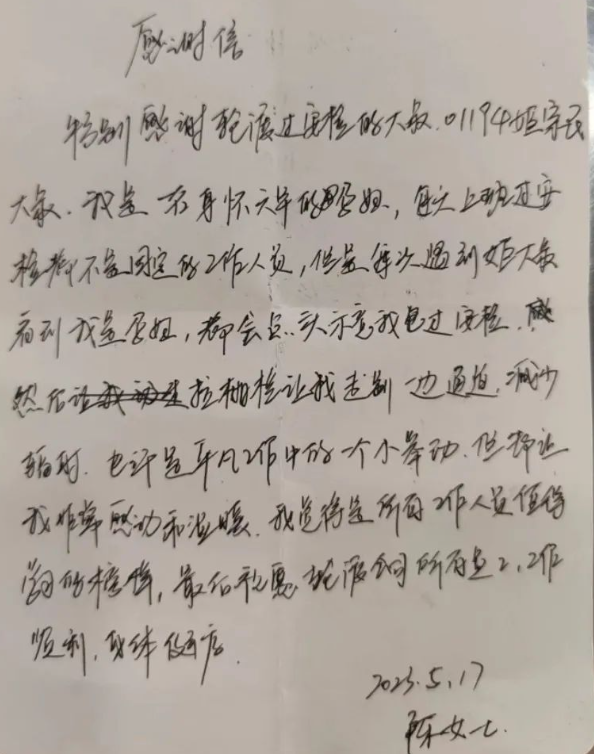 感谢信
特别感谢轮渡过安检的大叔.01194姬宗民
大叔.我是一名身怀六甲的孕妇，每天上班过安
检都不是固定的工作人员，但是每次遇到姬大叔
看到我是孕妇，都会点头示意我包过安检.
然后拉栅栏让我走别一边通道.减少
辐射.也许是平凡工作中的一个小举动.但却让
我非常感动和温暖.我觉得是所有工作人员值得
学习的榜样，最后祝愿轮渡公司所有员工,工作
顺利.身体健康.
2023.5.17
陈女士.